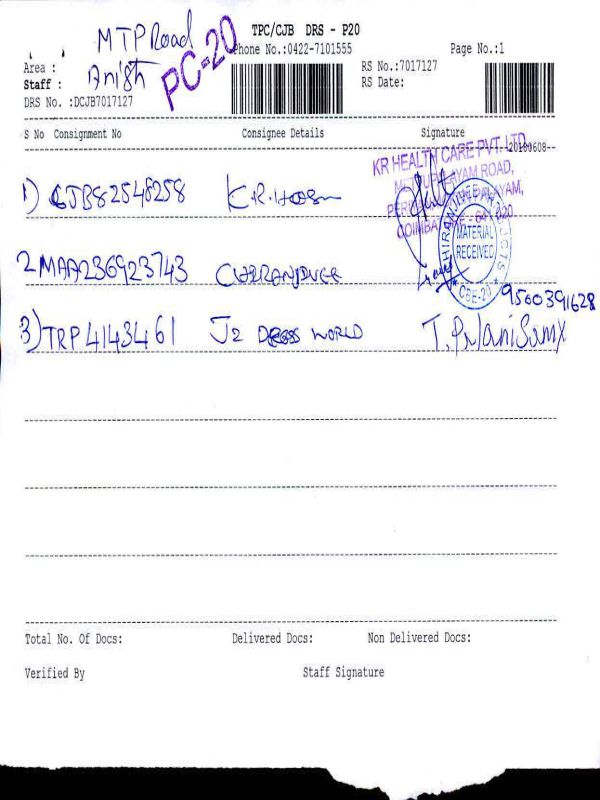 TPC/CJB DRS - P20
MTP Road
PC-20
Phone No.:0422-7101555
Page No.:1
Area :
RS No.:7017127
Staff : Anish
RS Date:
DRS No. :DCJB7017127
S No Consignment No Consignee Details Signature
20180608--
KR HEALTH CARE PVT. LTD
METTUPALAYAM ROAD,
COIMBATORE - 641 020
1) CJB82548258 K.R.
MATERIAL
RECEIVED
CBE-20
2 MAA236923743
9560391628
3) TRP4143461 J2 DRESS WORLD T. PalaniSamy
Total No. Of Docs: Delivered Docs: Non Delivered Docs:
Verified By Staff Signature